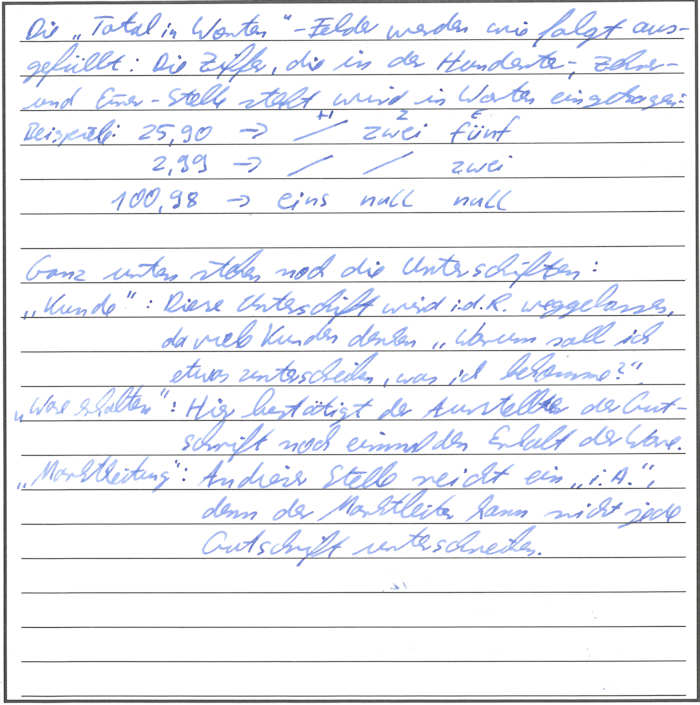 Die „Total in Worten“-Felder werden wie folgt aus-
gefüllt: Die Ziffer, die in der Hunderter-, Zehner-
und Einer-Stelle steht, wird in Worten eingetragen:
H Z E
Beispiele: 25,90 -> / zwei fünf
2,99 -> / / zwei
100,98 -> eins null null
Ganz unten stehen noch die Unterschriften:
„Kunde“: Diese Unterschift wird i.d.R. weggelassen,
da viele Kunden denken „Warum soll ich
etwas unterschreiben, was ich bekomme?“.
„Ware erhalten“: Hier bestätigt der Aussteller der Gut-
schrift noch einmal den Erhalt der Ware.
„Marktleitung“: An dieser Stelle reicht ein „i.A.“,
denn der Marktleiter kann nicht jede
Gutschrift unterschreiben.